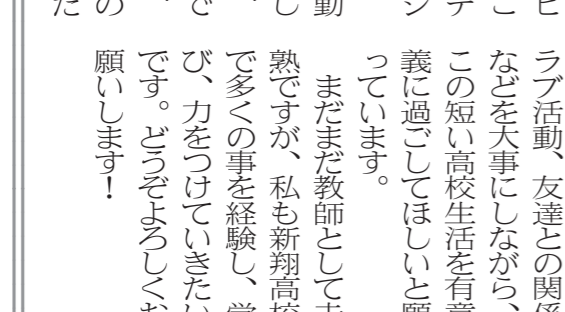 ラブ活動、友達との関係
などを大事にしながら、
この短い高校生活を有意
義に過ごしてほしいと願
っています。
まだまだ教師として未
熟ですが、私も新翔高校
で多くの事を経験し、学
び、力をつけていきたい
です。どうぞよろしくお
願いします！
ビ
こ
テ
ジ
動
し
、
で
、
の
た